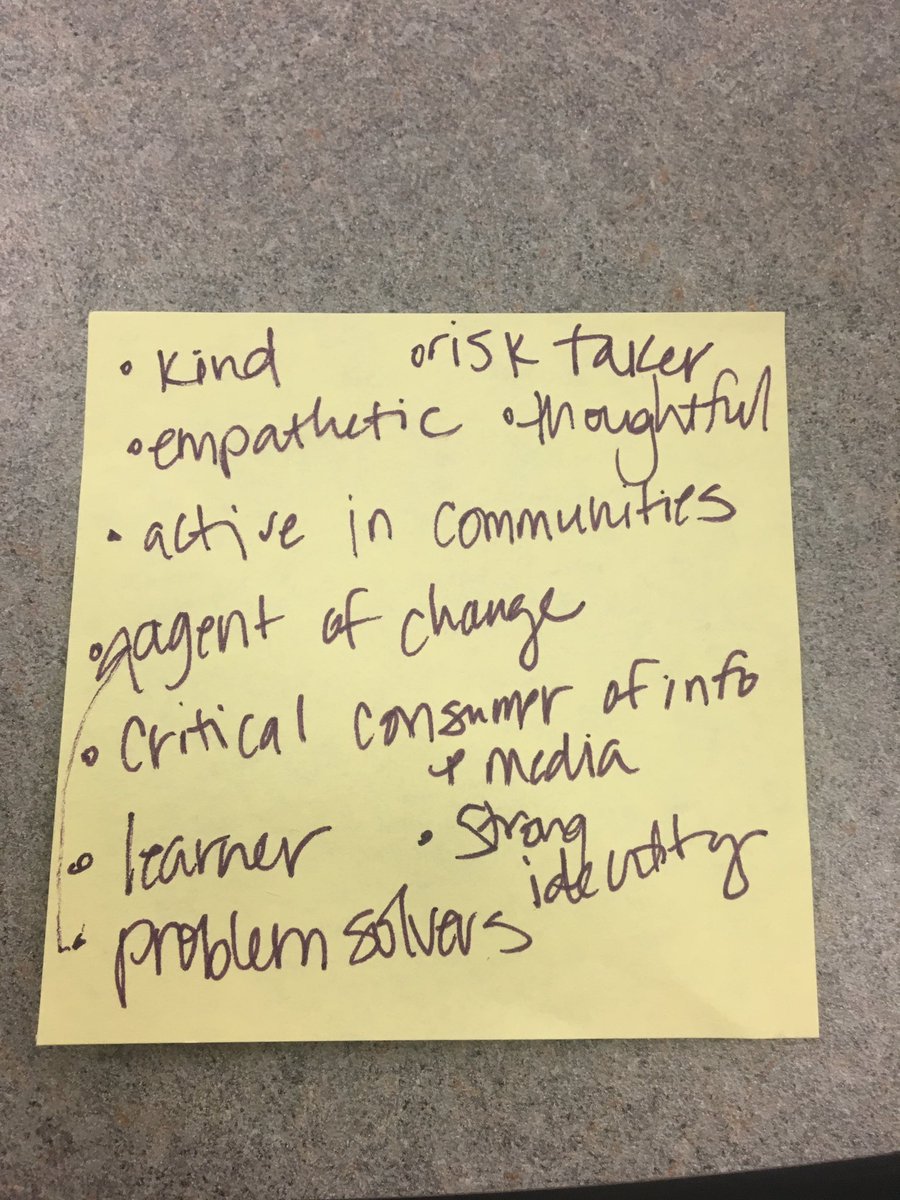 • kind • risk taker
• empathetic • thoughtful
• active in communities
• agent of change
• critical consumer of info
+ media
• learner • strong
identity
• problem solvers